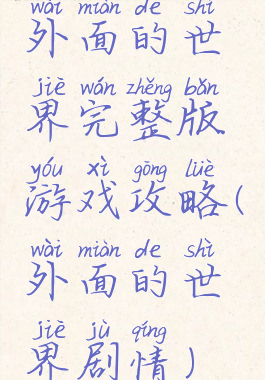 wài miàn de shì
外面的世
jiè wán zhěng bǎn
界完整版
yóu xì gōng lüè
游戏攻略(
wài miàn de shì
外面的世
jiè jù qíng
界剧情)